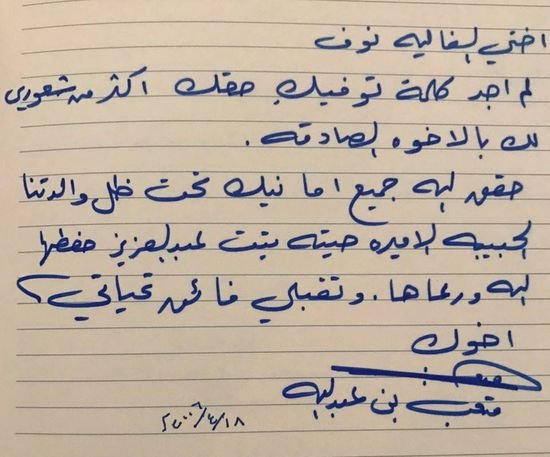 اختي الغاليه نوف
لم اجد كلمة توفيك حقك اكثر من شعوري
لك بالاخوه الصادقه .
حقق الله جميع امانيك تحت ظل والدتنا
الحبيبه الاميره حيته بنت عبدالعزيز حفظها
الله ورعاها . وتقبلي فائق تحياتي ؟
اخوك
متعب بن عبدالله
٢٠٠٦/٤/١٨